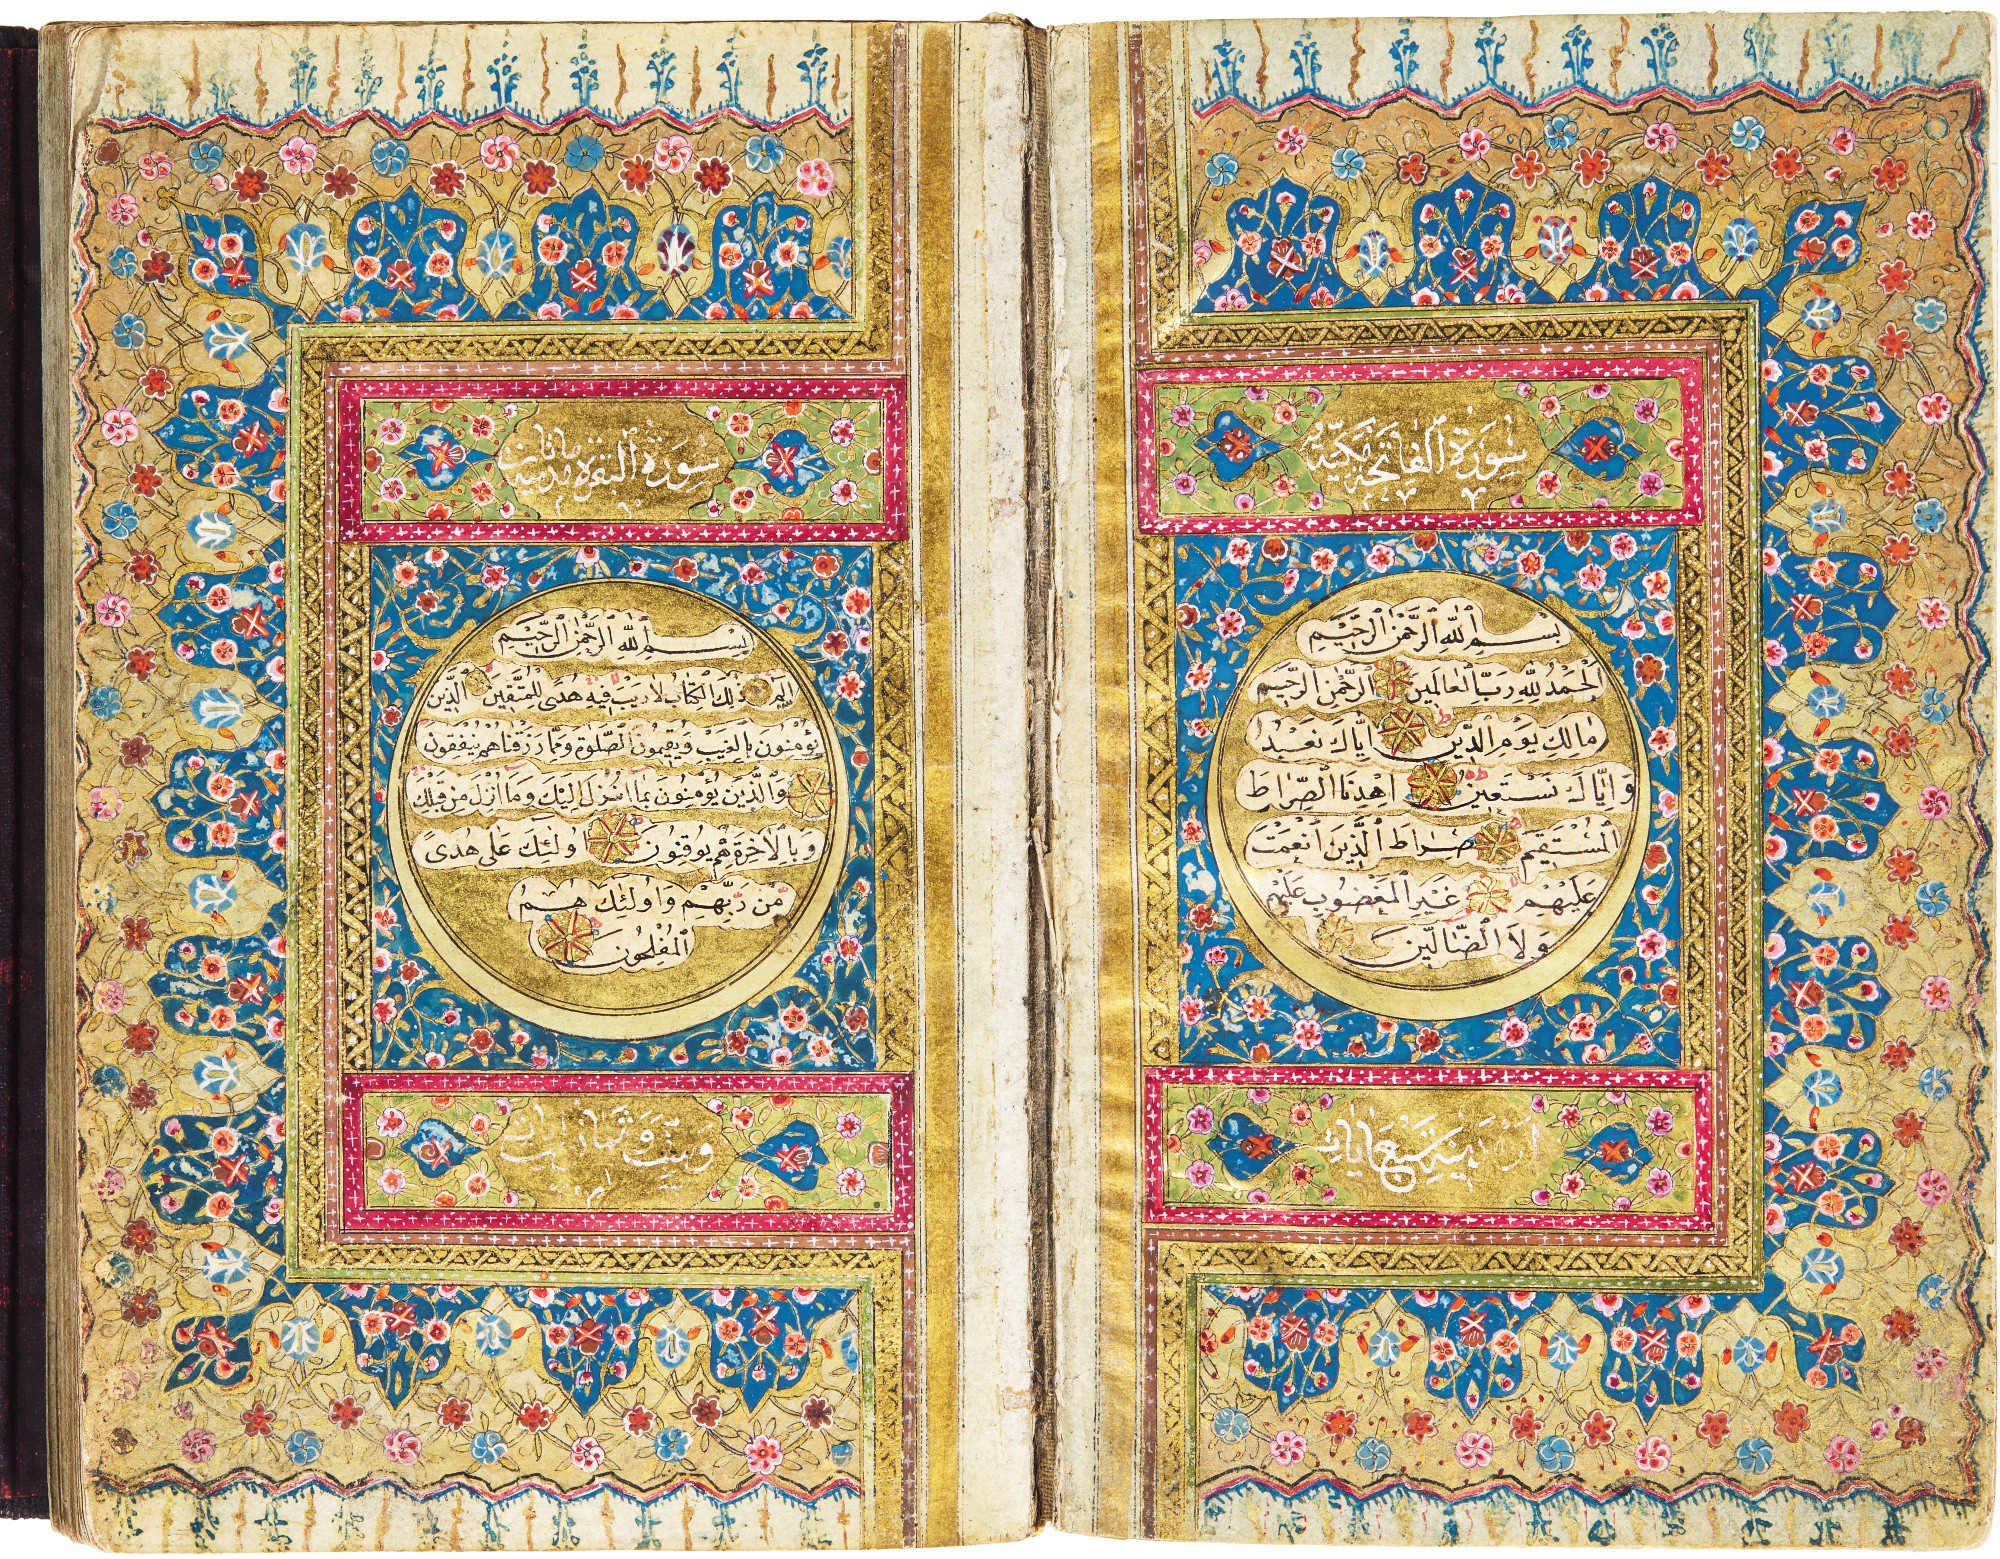 سورة الفاتحة مكية
بسم الله الرحمن الرحيم
الحمد لله رب العالمين الرحمن الرحيم
مالك يوم الدين اياك نعبد
واياك نستعين اهدنا الصراط
المستقيم صراط الذين انعمت
عليهم غير المغضوب عليهم
ولا الضالين
سبع ايات
سورة البقرة مدنية مائتان
بسم الله الرحمن الرحيم
الم ذلك الكتاب لا ريب فيه هدى للمتقين الذين
يؤمنون بالغيب ويقيمون الصلوة ومما رزقناهم ينفقون
والذين يؤمنون بما انزل اليك وما انزل من قبلك
وبالاخرة هم يوقنون اولئك على هدى
من ربهم واولئك هم
المفلحون
وست وثمانون ايات